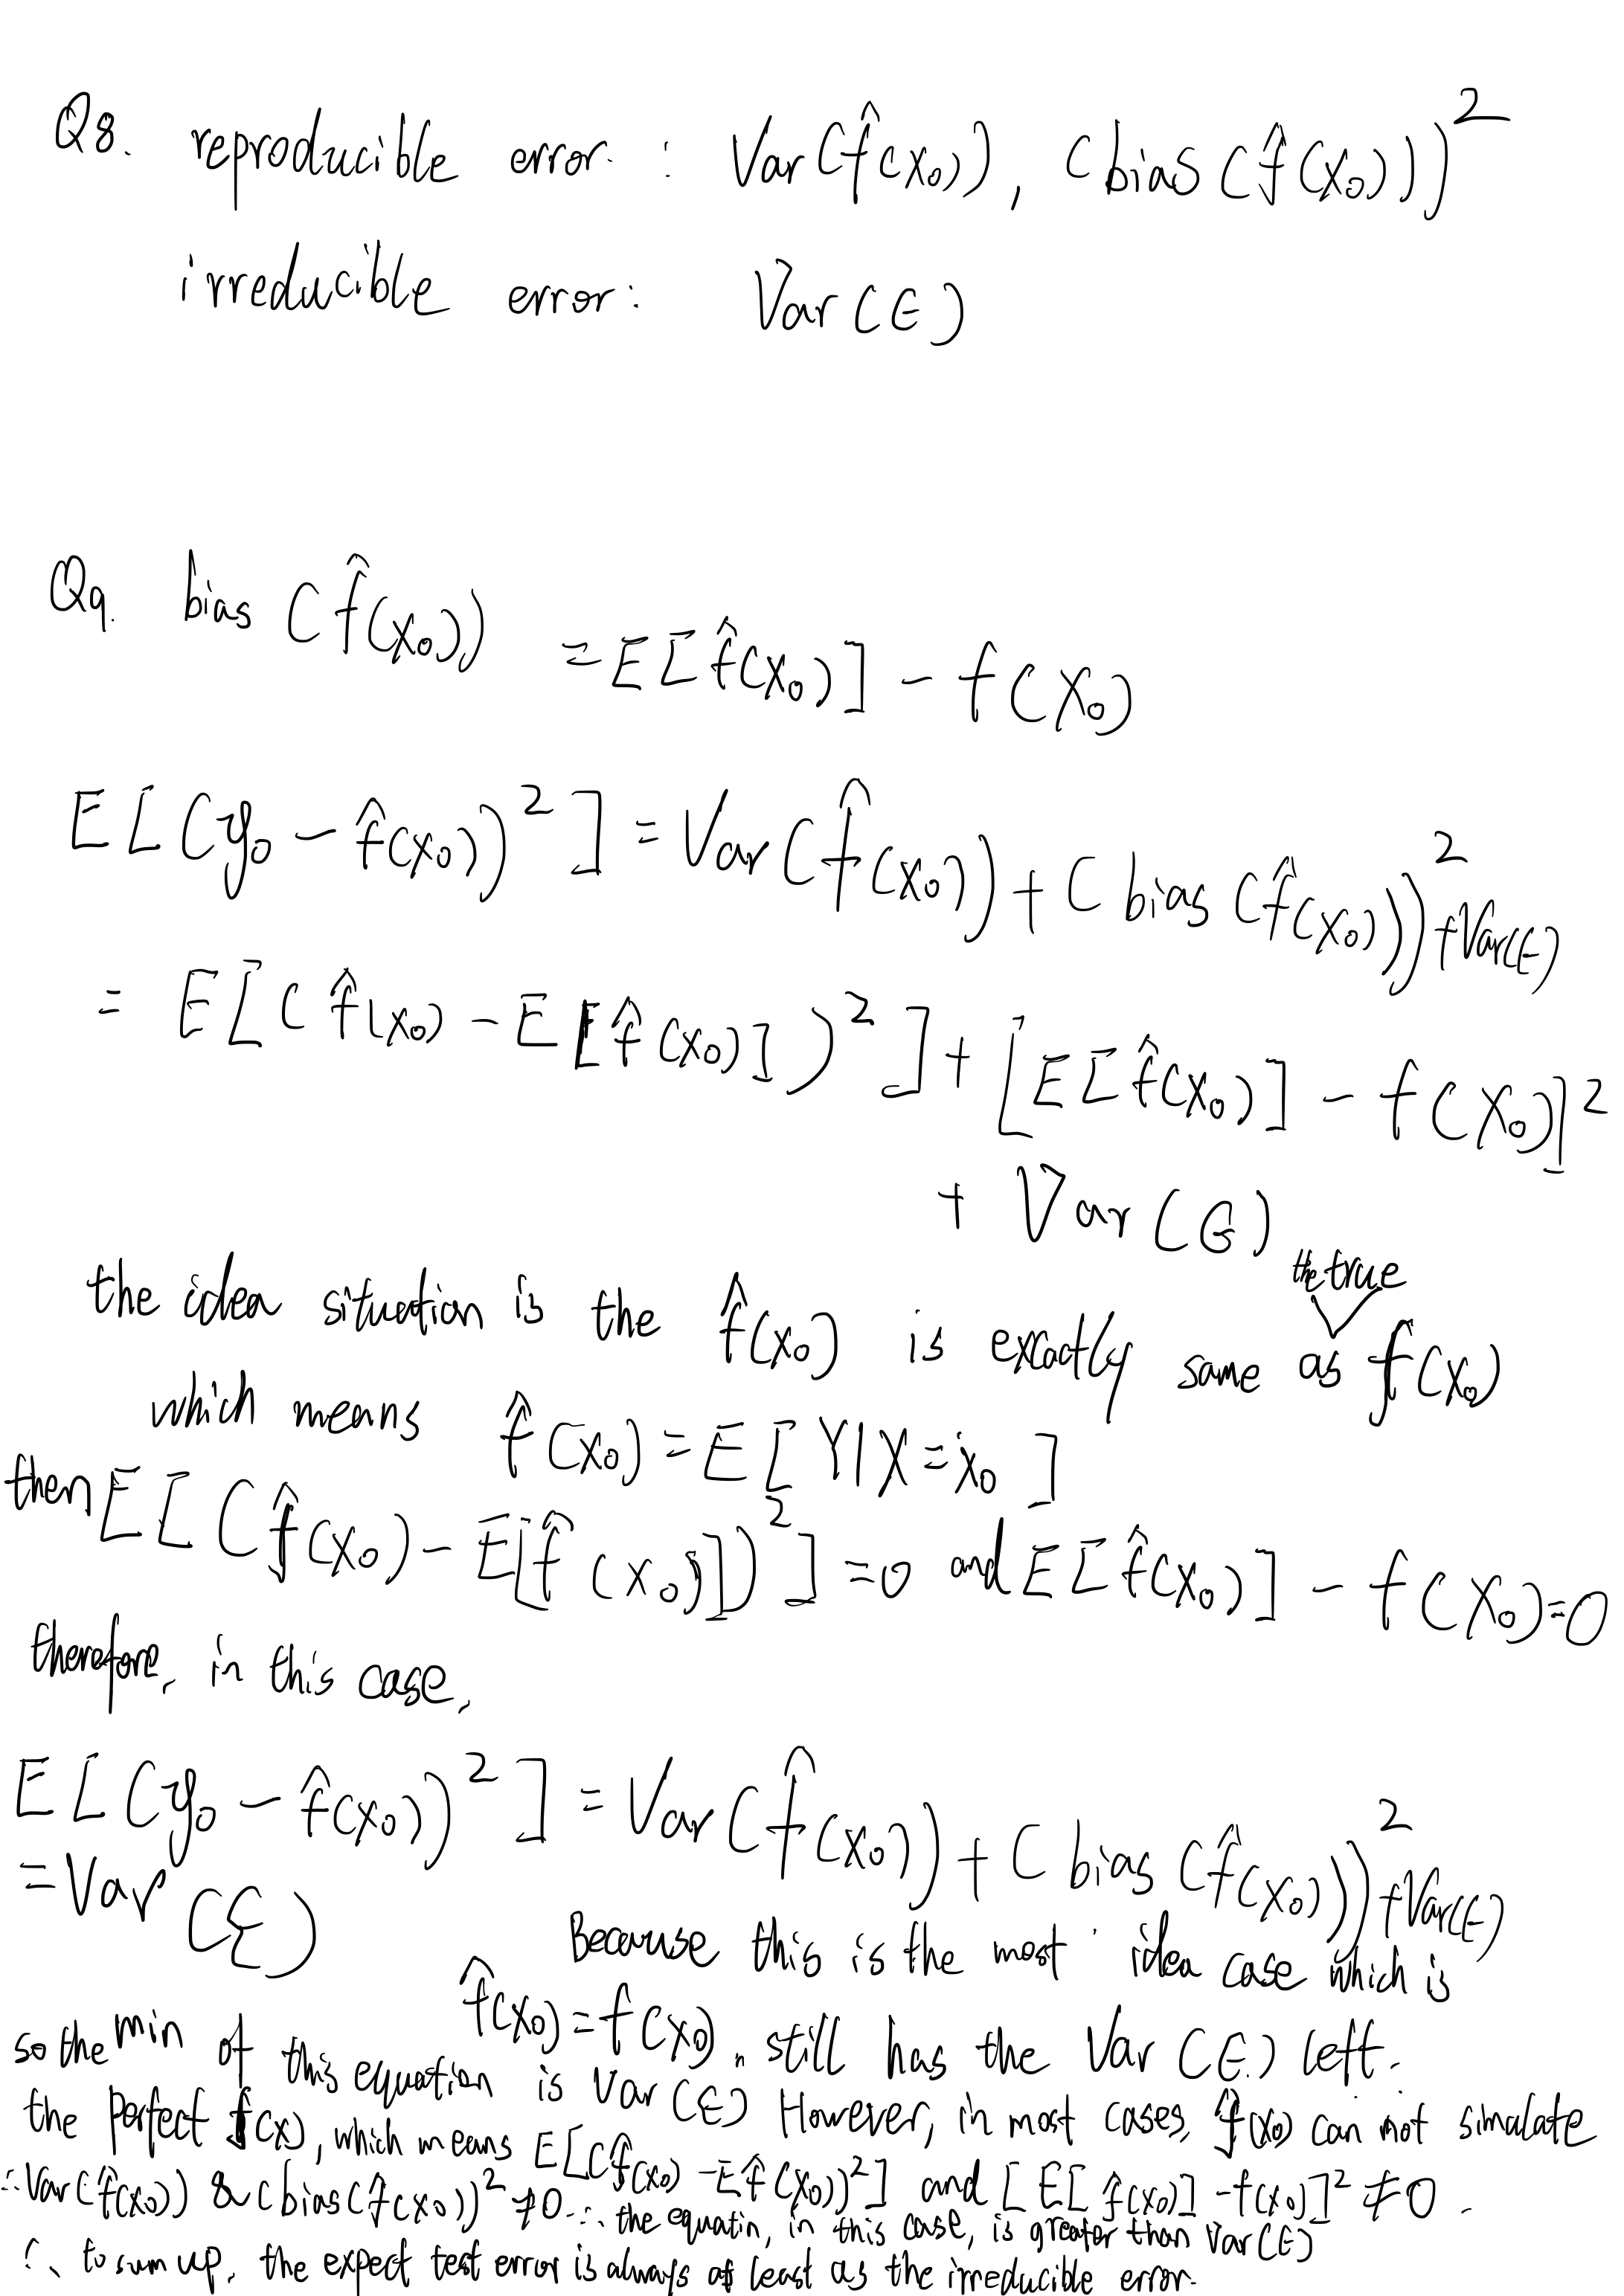 Q8. reproducible error : Var(f̂(x₀)), (bias(f̂(x₀)))²
irreducible error: Var(ϵ)
Q9. bias (f̂(x₀)) = E[f̂(x₀)] - f(x₀)
E[(y₀ - f̂(x₀))²] = Var(f̂(x₀)) + (bias(f̂(x₀)))² + Var(ϵ)
= E[(f̂(x₀) - E[f̂(x₀)])²] + [E[f̂(x₀)] - f(x₀)]²
+ Var(ϵ)
the idea situation is the f̂(x₀) is exactly same as the true f(x₀)
which means f̂(x₀) = E[Y|X=x₀]
then E[(f̂(x₀) - E[f̂(x₀)])²] = 0 and E[f̂(x₀)] - f(x₀) = 0
therefore, in this case,
E[(y₀ - f̂(x₀))²] = Var(f̂(x₀)) + (bias(f̂(x₀)))² + Var(ϵ)
= Var(ε)
Because this is the most idea case which is
f̂(x₀) = f(x₀), still has the Var(ϵ) left.
so the min of this equation is Var(ϵ) However, in most cases, f̂(x₀) can not simulate
the perfect f(x), which means E[(f̂(x₀) - Ef̂(x₀))²] and [E[f̂(x₀)] - f(x₀)]² ≠ 0.
∴ Var(f̂(x₀)) & (bias(f̂(x₀)))² ≠ 0 ∴ the equatin, in this case, is greater than Var(ϵ)
∴ to sum up, the expect test error is always at least as the irreducible error.